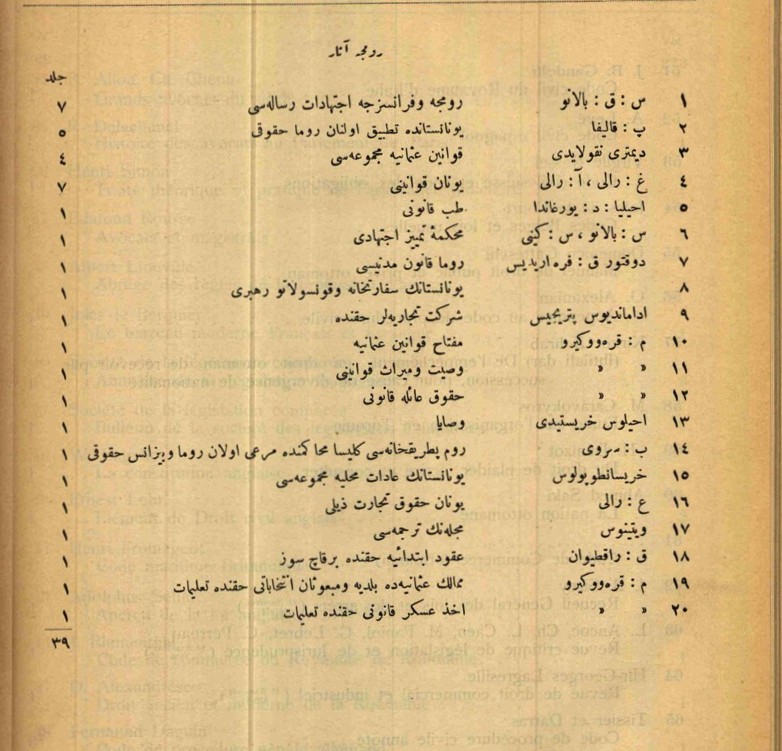 رومجه آثار
جلد
١ س : ق : بالانو رومجه وفرانسزجه اجتهادات رساله‌سی ٧
٢ پ : قالیفا یونانستانده تطبیق اولنان روما حقوقی ٥
٣ دیمتری نقولایدی قوانین عثمانیه مجموعه‌سی ٤
٤ غ : رالی ، آ : رالی یونان قوانینی ٧
٥ احیلیا : د : یورغاندا طب قانونی ١
٦ س : بالانو ، س : کینی محکمهٔ تمییز اجتهادی ١
٧ دوقتور ق : فره اریدیس روما قانون مدنیسی ١
٨ یونانستانك سفارتخانه وقونسولاتو رهبری ١
٩ ادامانديوس پتریجیس شرکت تجاریه‌لر حقنده ١
١٠ م : قره‌ووکیرو مفتاح قوانین عثمانیه ١
١١ » » وصیت ومیراث قوانینی ١
١٢ » » حقوق عائله قانونی ١
١٣ احیلوس خریستیدی وصایا ١
١٤ ب : سروی روم بطریقخانه‌سی کلیسا محاکمنده مرعی اولان روما وبیزانس حقوقی ١
١٥ خریسانطوپولوس یونانستانك عادات محلیه مجموعه‌سی ١
١٦ ع : رالی یونان حقوق تجارت ذیلی ١
١٧ ویتینوس مجله‌نك ترجمه‌سی ١
١٨ ق : راقطیوان عقود ابتدائیه حقنده برقاچ سوز ١
١٩ م : قره‌ووکیرو ممالك عثمانیه‌ده بلدیه ومبعوثان انتخاباتی حقنده تعلیمات ١
٢٠ » » اخذ عسکر قانونی حقنده تعلیمات ١
٣٩